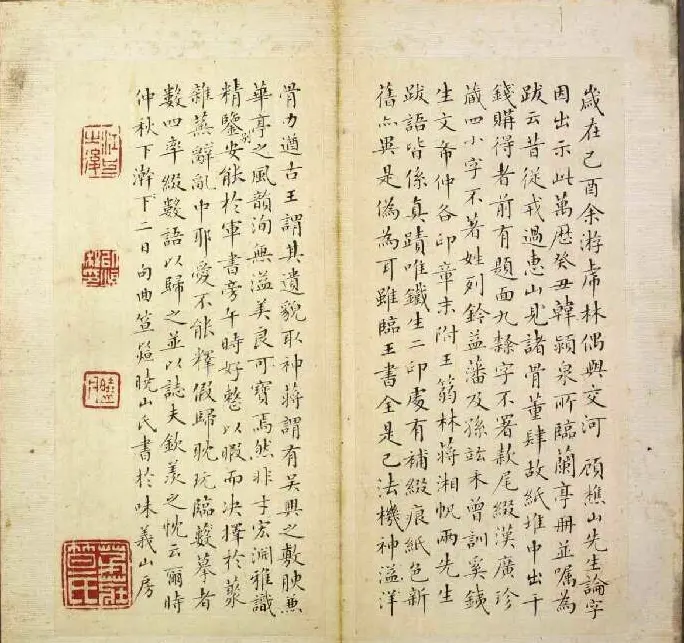 歲在己酉余游席林偶與交河顧樵山先生論字
因出示此萬曆癸丑韓潁泉所臨蘭亭冊並囑為
跋云昔從戎過惠山見諸骨董肆故紙堆中出千
錢購得者前有題面九隸字不署款尾綴漢廣珍
藏四小字不著姓列鈐益藩及孫竑禾曾訓奚鐵
生文仲各印章末附王蒻林蔣湘帆兩先生
跋語皆係真蹟唯鐵生二印處有補綴痕紙色新
舊亦異是偽為耳雖臨王書全是己法機神溢洋
骨力遒古王謂其遺貌取神蔣謂有吳興之敷腴兼
華亭之風韻洵無溢美良可寶焉然非于宏洞雅識
精鑒別安能於軍書旁午時好整以暇而决擇於叢
雜蕪亂中耶愛不能釋假歸耽玩臨摹者
數四率綴數語以歸之並以誌夫欽羨之忱云爾時
仲秋下澣下二日句曲笪曉山氏書於味義山房